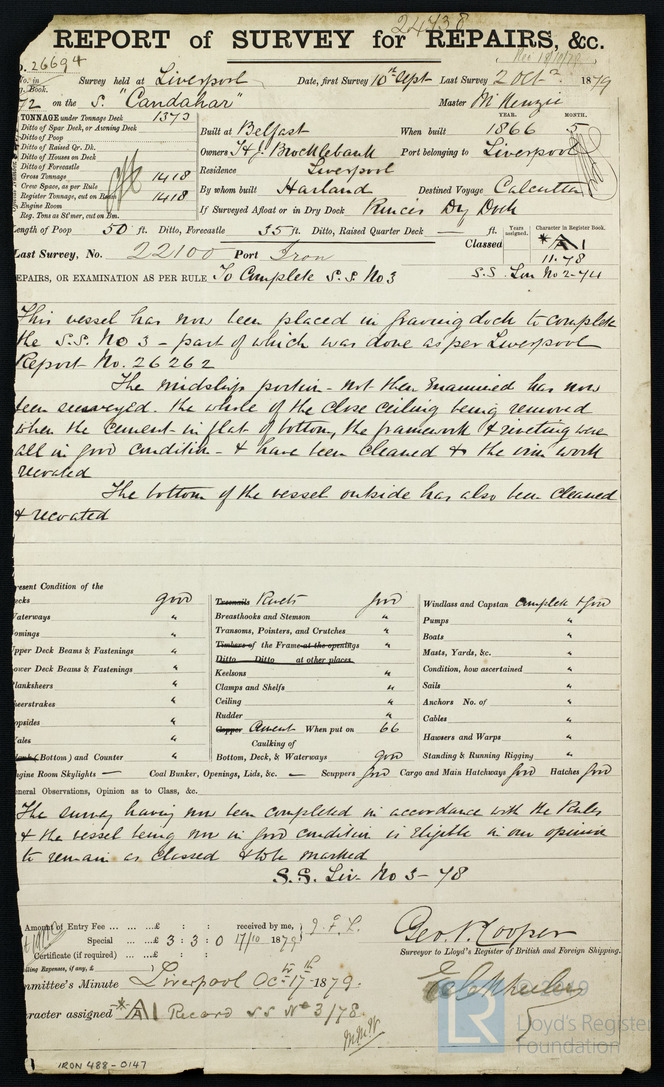 24738
REPORT of SURVEY for REPAIRS, &c.
26694
Survey held at Liverpool Date, first Survey 10th Sept Last Survey 2 Oct 1879
72 on the S. "Candahar" Master McKenzie
TONNAGE under Tonnage Deck 1373
Ditto of Spar Deck, or Awning Deck
Ditto of Poop
Ditto of Raised Qr. Dk.
Ditto of Houses on Deck
Ditto of Forecastle
Gross Tonnage 1418
Crew Space, as per Rule
Register Tonnage, cut on Beam 1418
Engine Room
Reg. Tons as St'mer, cut on Bm.
YEAR. MONTH.
Built at Belfast When built 1866 5
Owners T & J. Brocklebank Port belonging to Liverpool
Residence Liverpool
By whom built Harland Destined Voyage Calcutta
If Surveyed Afloat or in Dry Dock Princes Dry Dock
Length of Poop 50 ft. Ditto, Forecastle 35 ft. Ditto, Raised Quarter Deck — ft.
Years assigned. Character in Register Book.
Classed * A1
11.78
Last Survey, No. 22100 Port Iron
S.S. Lon No 2-74
REPAIRS, OR EXAMINATION AS PER RULE To Complete S.S. No 3
This vessel has now been placed in graving dock to complete
the S.S. No 3 - part of which was done as per Liverpool
Report No. 26262
The midship portion - not then examined has now
been surveyed. the whole of the close ceiling being removed
when the cement in flat of bottom, the framework & riveting were
all in good condition - & have been cleaned & the iron work
recoated
The bottom of the vessel outside has also been cleaned
& recoated
Present Condition of the
Decks good
Waterways "
Comings "
Upper Deck Beams & Fastenings "
Lower Deck Beams & Fastenings "
Planksheers "
Sheerstrakes "
Topsides "
Wales "
Plank (Bottom) and Counter "
Treenails Rivets good
Breasthooks and Stemson "
Transoms, Pointers, and Crutches "
Timbers of the Frame at the openings "
Ditto Ditto at other places
Keelsons "
Clamps and Shelfs "
Ceiling "
Rudder "
Copper Cement When put on 66
Caulking of
Bottom, Deck, & Waterways good
Windlass and Capstan Complete & good
Pumps "
Boats "
Masts, Yards, &c. "
Condition, how ascertained "
Sails "
Anchors No. of "
Cables "
Hawsers and Warps "
Standing & Running Rigging "
Engine Room Skylights — Coal Bunker, Openings, Lids, &c. — Scuppers good Cargo and Main Hatchways good Hatches good
General Observations, Opinion as to Class, &c.
The survey having now been completed in accordance with the Rules
& the vessel being now in good condition is eligible in our opinion
to remain as classed & to be marked
S.S. Liv. No 3-78
Amount of Entry Fee ... ... ...£ : : received by me,
Special ... ...£ 3 : 3 : 0 17/10 1879 J.F.L.
Certificate (if required) ... ...£ : :
Travelling Expenses, if any, £
Geo. N. Cooper
Surveyor to Lloyd's Register of British and Foreign Shipping.
Committee's Minute Liverpool Oct 17th 1879.
Character assigned * A1 Record SS No 3/78
© 2019
LR
Lloyd's Register
Foundation
IRON 488-0147